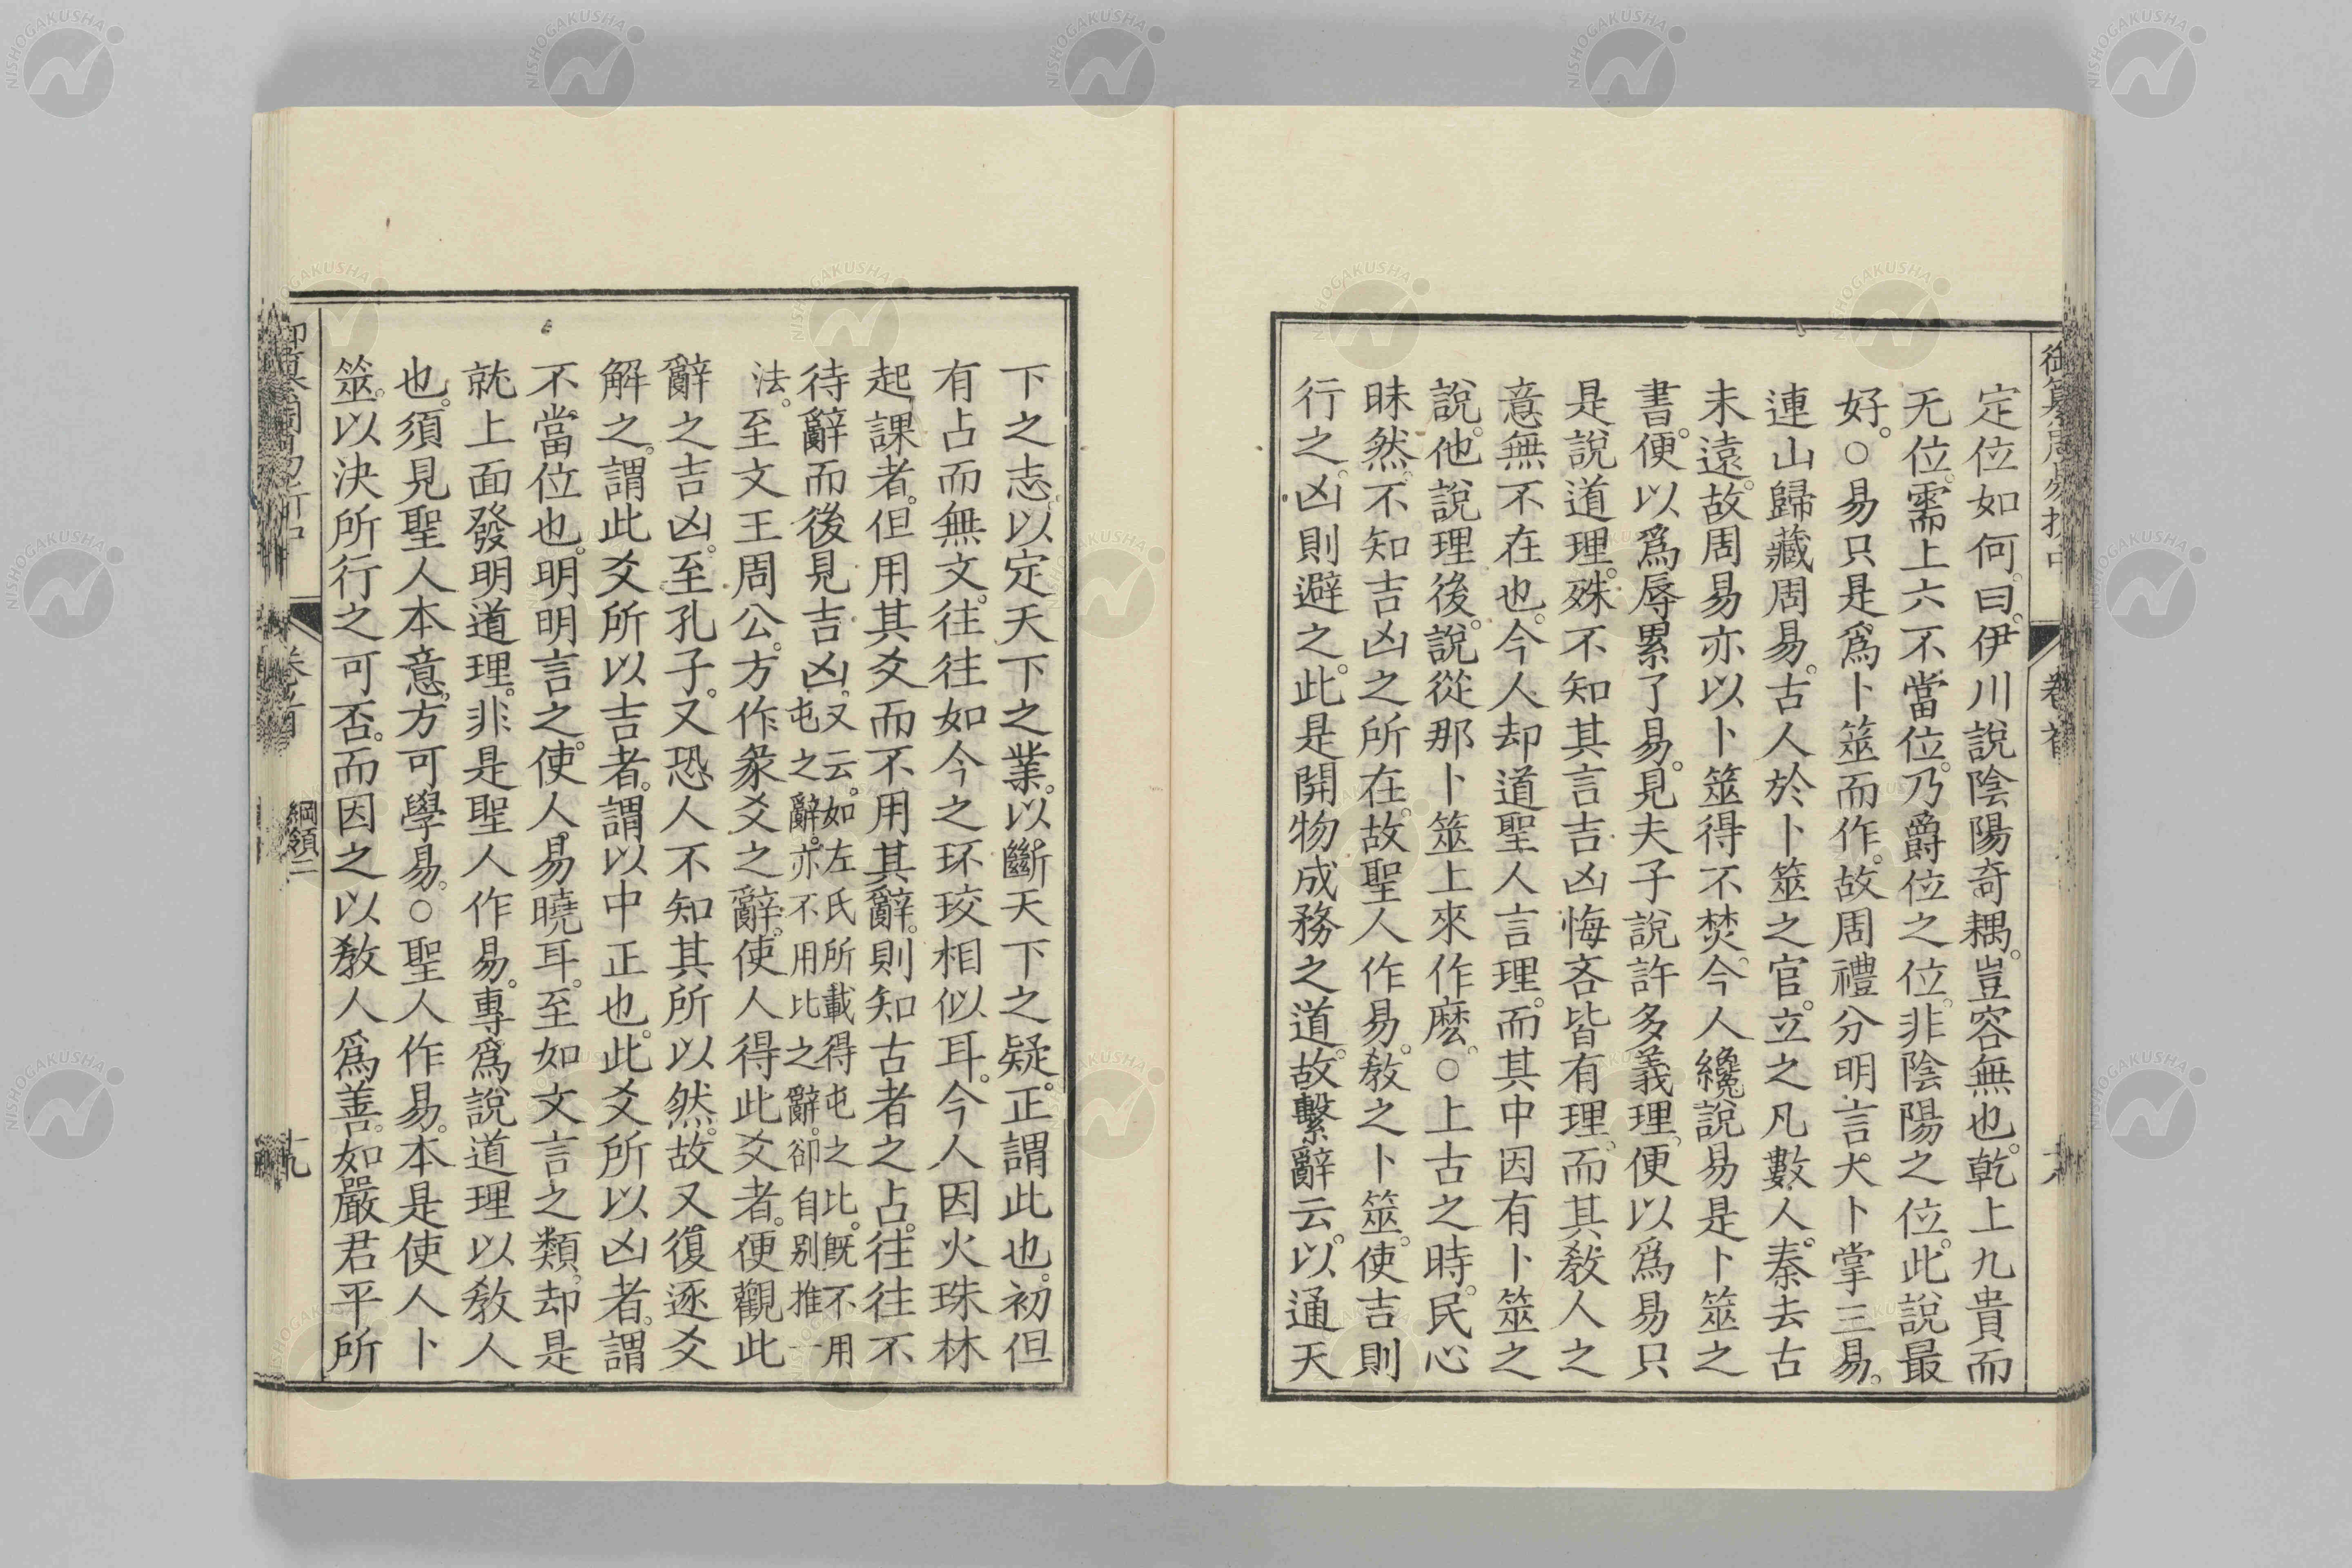 定位如何。曰。伊川說陰陽奇耦。豈容無也。乾上九貴而
无位。需上六不當位。乃爵位之位。非陰陽之位。此說最
好。○易只是爲卜筮而作。故周禮分明言大卜掌三易。
連山歸藏周易。古人於卜筮之官。立之凡數人。秦去古
未遠。故周易亦以卜筮得不焚。今人纔說易是卜筮之
書。便以爲辱累了易。見夫子說許多義理。便以爲易只
是說道理。殊不知其言吉凶悔吝皆有理。而其教人之
意無不在也。今人却道聖人言理。而其中因有卜筮之
說。他說理後。說從那卜筮上來作麽。○上古之時。民心
昧然。不知吉凶之所在。故聖人作易。教之卜筮。使吉則
行之。凶則避之。此是開物成務之道。故繫辭云。以通天
下之志。以定天下之業。以斷天下之疑。正謂此也。初但
有占而無文。往往如今之环珓相似耳。今人因火珠林
起課者。但用其爻而不用其辭。則知古者之占。往往不
待辭而後見吉凶。又云。如左氏所載得屯之比。旣不用
屯之辭。亦不用比之辭。卻自别推一
法。至文王周公。方作彖爻之辭。使人得此爻者。便觀此
辭之吉凶。至孔子。又恐人不知其所以然。故又復逐爻
解之。謂此爻所以吉者。謂以中正也。此爻所以凶者。謂
不當位也。明明言之。使人易曉耳。至如文言之類。却是
就上面發明道理。非是聖人作易。專爲說道理以教人
也。須見聖人本意。方可學易。○聖人作易。本是使人卜
筮。以決所行之可否。而因之以教人爲善。如嚴君平所
綱領二
NISHOGAKUSHA